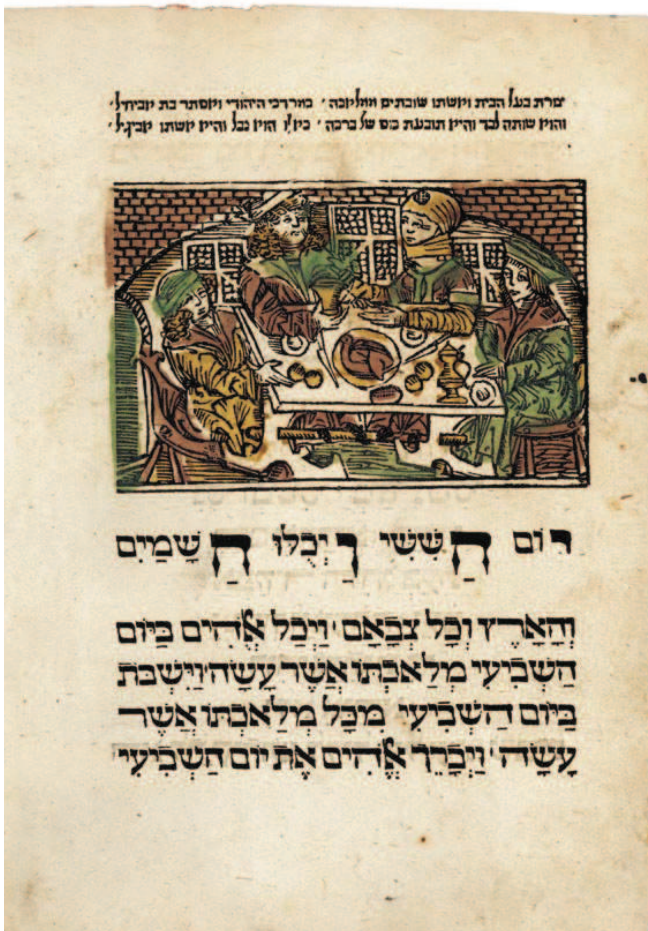 צורת בעל הבית ואשתו שובתים ממלאכה ׳ כמרדכי היהודי ואסתר בת אביחיל ׳
והוא שותה לבד והיא תובעת כוס של ברכה ׳ כאלו הוא נבל והיא אשתו אביגיל ׳
יוֹם הַשִּׁשִּׁי וַיְכֻלּוּ הַשָּׁמַיִם
וְהָאָרֶץ וְכָל צְבָאָם ׳ וַיְכַל אֱלֹהִים בַּיּוֹם
הַשְׁבִיעִי מְלַאכְתּוֹ אֲשֶׁר עָשָׂה ׳ וַיִּשְׁבֹּת
בַּיּוֹם הַשְׁבִיעִי מִכָּל מְלַאכְתּוֹ אֲשֶׁר
עָשָׂה ׳ וַיְבָרֶךְ אֱלֹהִים אֶת יוֹם הַשְׁבִיעִי